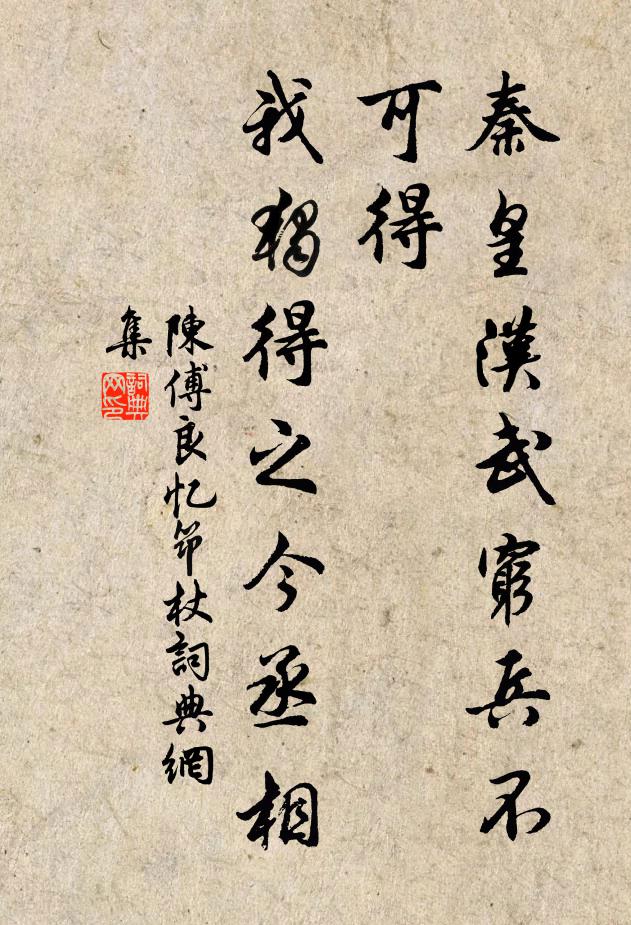 秦皇漢武窮兵不
可得
我獨得之今丞相
陳傅良忆笻杖詞典網
集
詞典
网印